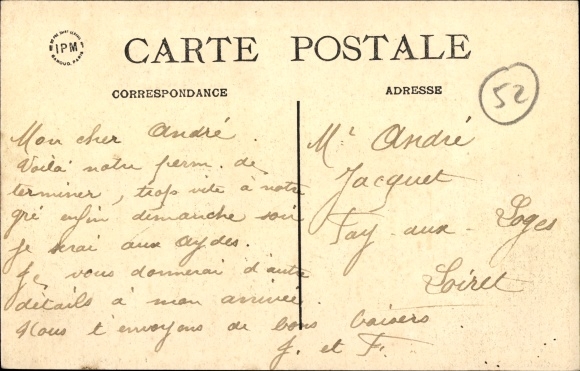 IPM
CARTE POSTALE
CORRESPONDANCE
ADRESSE
52
Mon cher André.
Voilà notre perm. de
terminer, trop vite à notre
gré enfin démanche soir
je serai aux Aydes.
Je vous donnerai d'autre
détails à mon arrivée.
Nous t'envoyons de bons baisers
J. et F.
Mr André
Jacquet
Fay-aux-Loges
Loiret